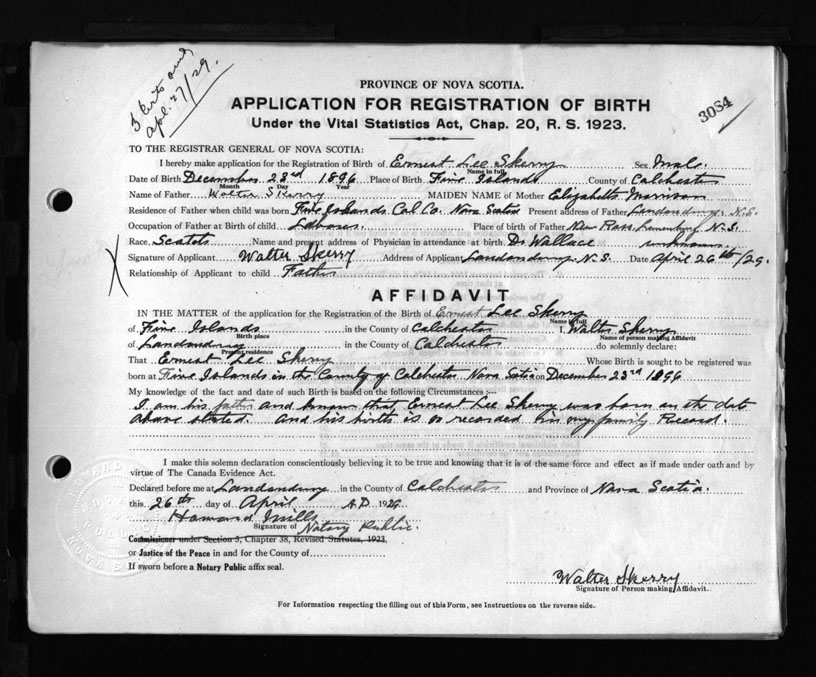 Apl. 27/29.
3054
PROVINCE OF NOVA SCOTIA.
APPLICATION FOR REGISTRATION OF BIRTH
Under the Vital Statistics Act, Chap. 20, R. S. 1923.
TO THE REGISTRAR GENERAL OF NOVA SCOTIA:
I hereby make application for the Registration of Birth of Ernest Lee Skerry Sex Male.
Name in full
Date of Birth December 23rd 1896 Place of Birth Five Islands County of Colchester
Month Day Year
Name of Father Walter Skerry MAIDEN NAME of Mother Elizabeth Morrison
Residence of Father when child was born Five Islands Col Co. Nova Scotia Present address of Father Londonderry N.S.
Occupation of Father at Birth of child Laborer. Place of birth of Father New Ross Lunenburg N.S.
Race Scotch Name and present address of Physician in attendance at birth Dr Wallace unknown.
Signature of Applicant Walter Skerry Address of Applicant Londonderry N.S. Date April 26th/29.
Relationship of Applicant to child Father
AFFIDAVIT
IN THE MATTER of the application for the Registration of the Birth of Ernest Lee Skerry
Name in full
of Five Islands in the County of Colchester I, Walter Skerry
Birth place Name of person making Affidavit
of Londonderry in the County of Colchester do solemnly declare:
Present residence
That Ernest Lee Skerry Whose Birth is sought to be registered was
born at Five Islands in the County of Colchester Nova Scotia on December 23rd 1896
My knowledge of the fact and date of such Birth is based on the following Circumstances:—
I am his father and know that Ernest Lee Skerry was born on the date
above stated. And his birth is so recorded in my family Record.
I make this solemn declaration conscientiously believing it to be true and knowing that it is of the same force and effect as if made under oath and by
virtue of The Canada Evidence Act.
Declared before me at Londonderry in the County of Colchester and Province of Nova Scotia.
this 26th day of April A.D. 1929
Howard Mills
Signature of Notary Public.
Commissioner under Section 5, Chapter 38, Revised Statutes, 1923,
or Justice of the Peace in and for the County of
If sworn before a Notary Public affix seal.
Walter Skerry
Signature of Person making Affidavit.
For Information respecting the filling out of this Form, see Instructions on the reverse side.